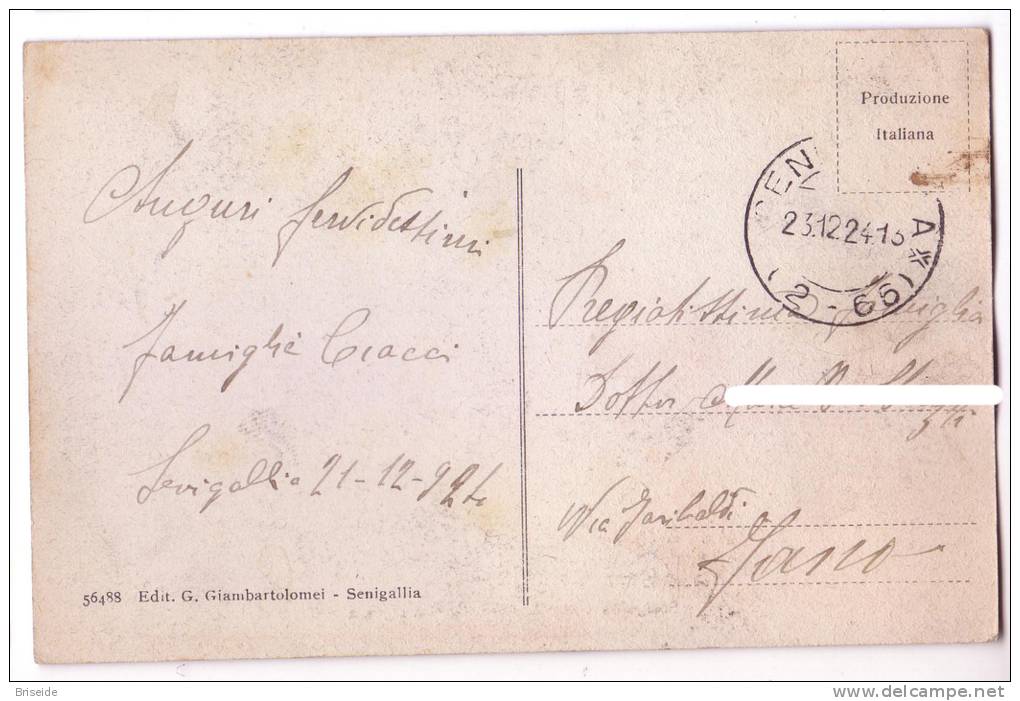 Produzione
Italiana
SEN A
23.12.24.15
(2-65)
Auguri fervidissimi
famiglia Ciacci
Senigallia 21-12-924
Pregiatissima famiglia
Dottor
Via Garibaldi
Fano
56488 Edit. G. Giambartolomei - Senigallia
Briseide
www.delcampe.net